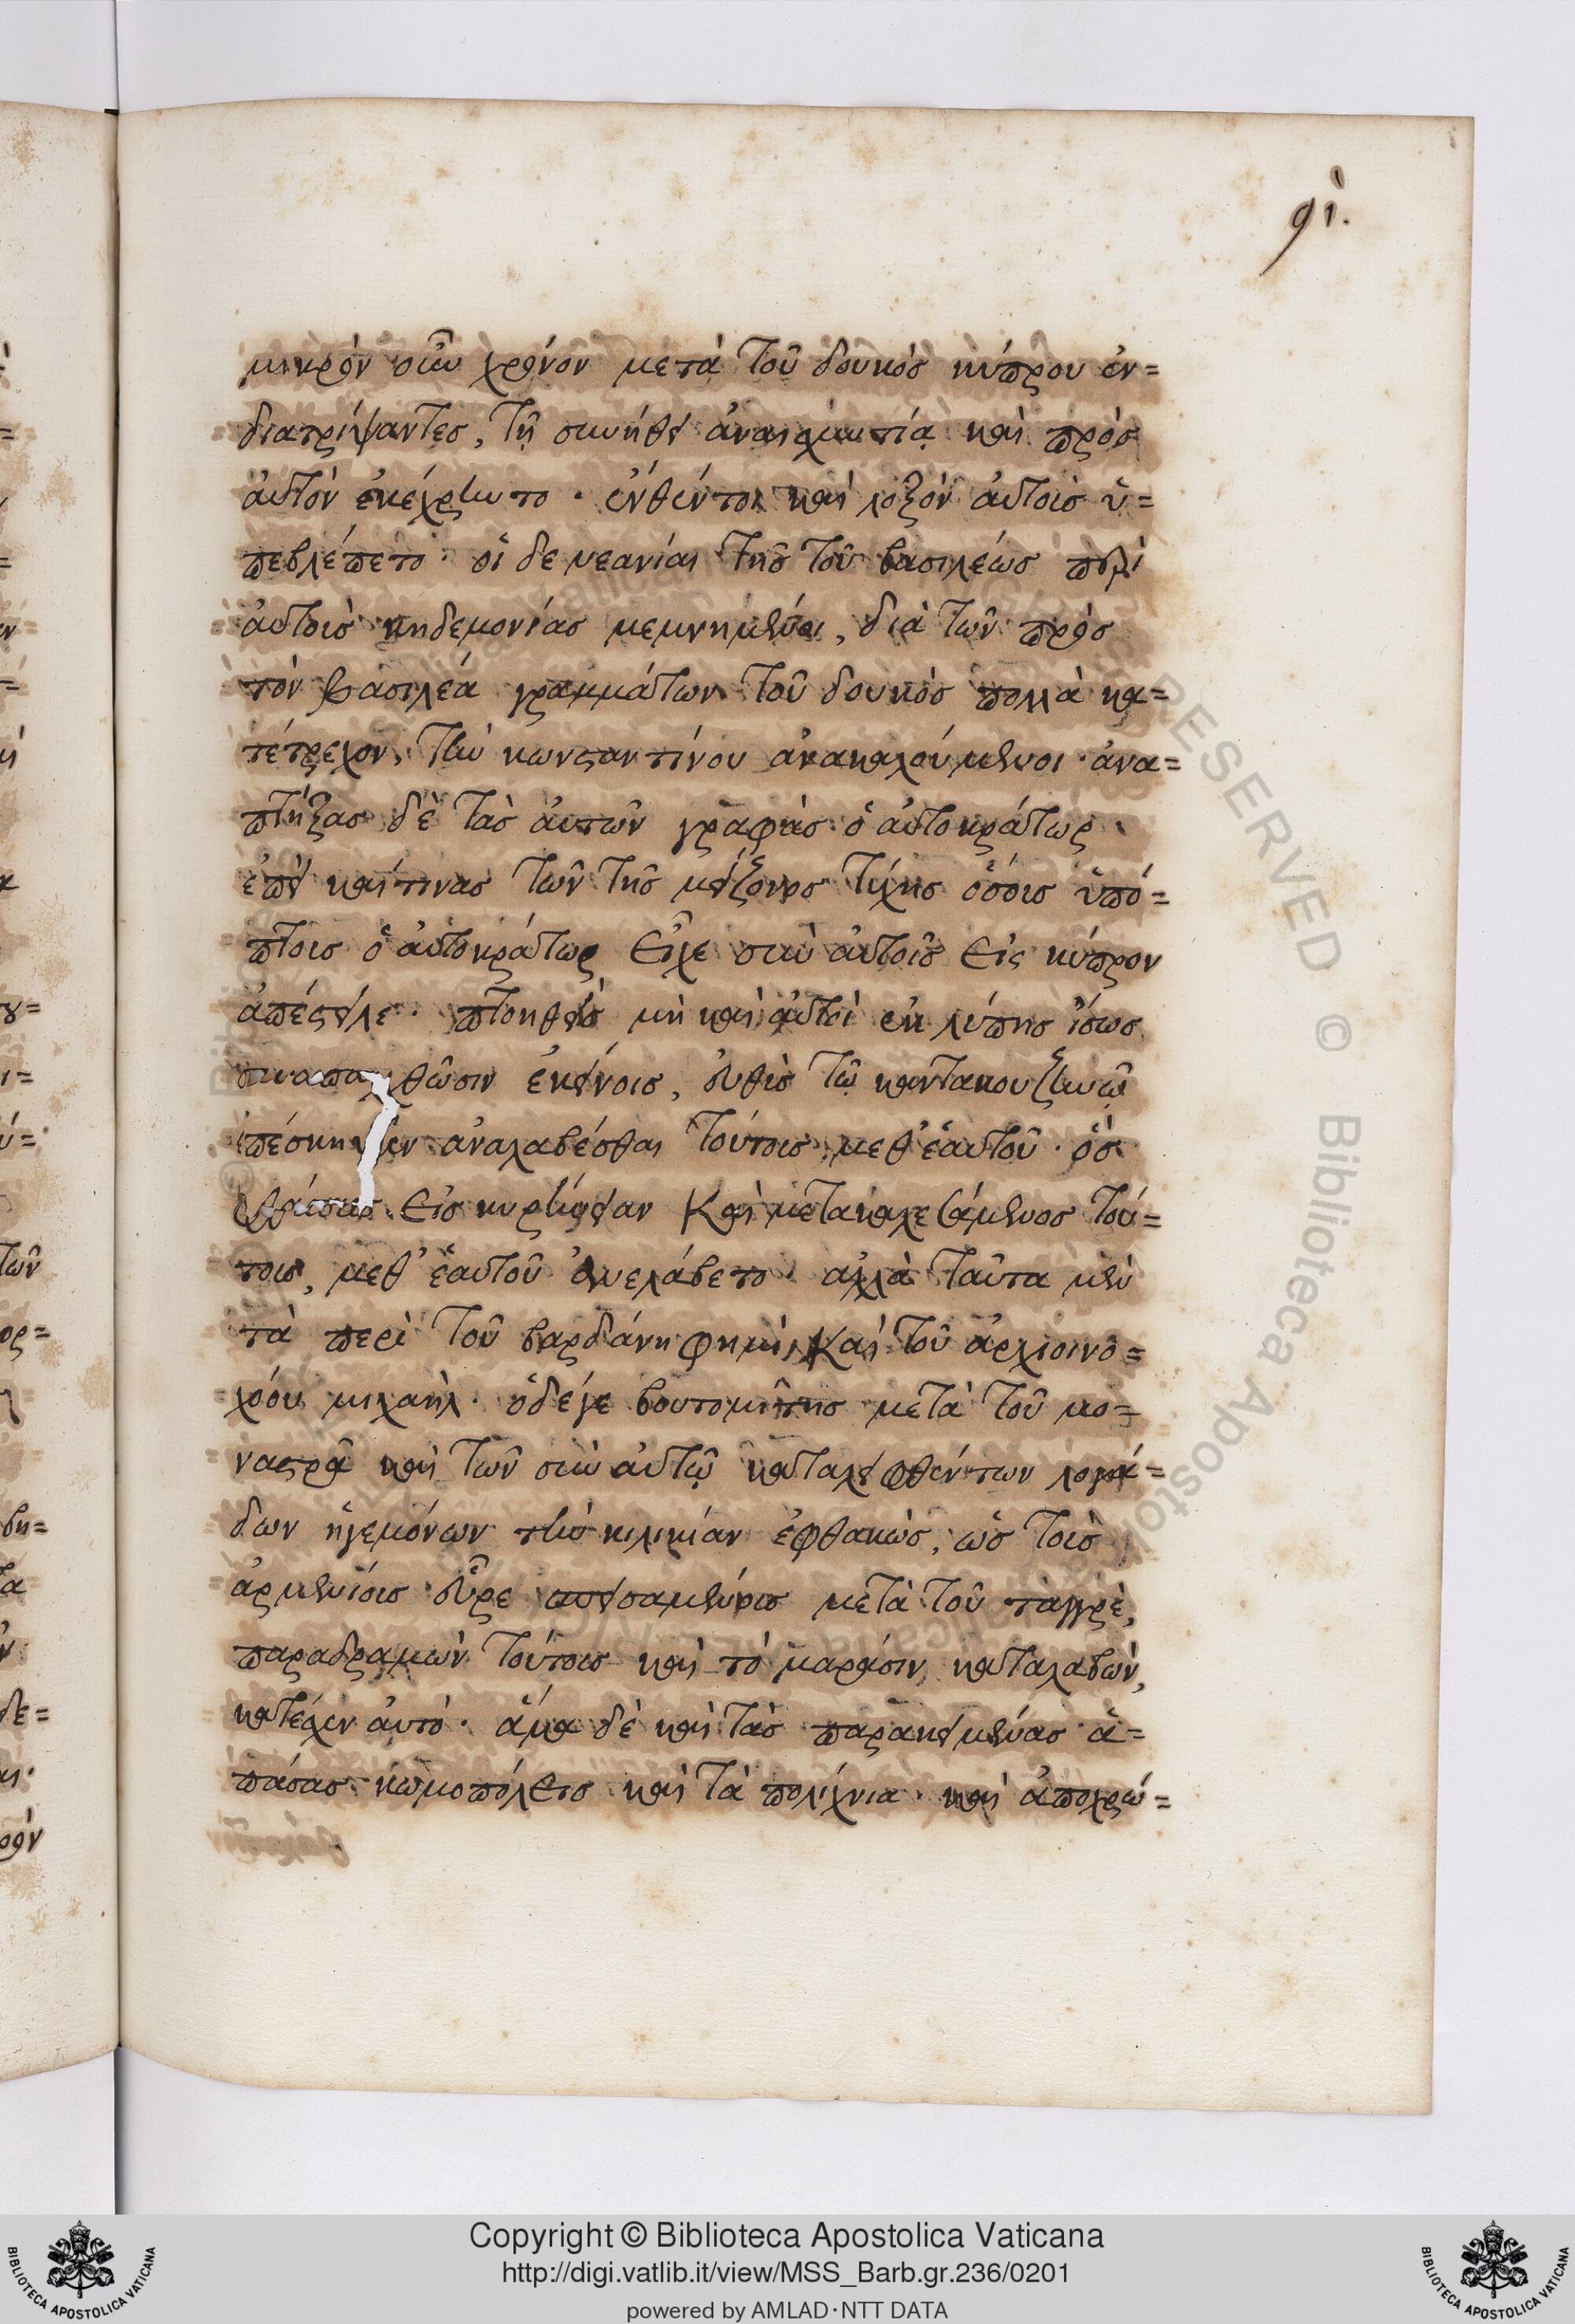 ϙι.
μικρὸν οὖν χρόνον μετὰ τοῦ δουκὸς κύπρου ἐν=
διατρίψαντες, τῇ συνήθει ἀναισχυντίᾳ καὶ πρὸς
αὐτὸν ἐκέχρηντο. ἐνθέντοι καὶ λοξὸν αὐτοῖς ὑ=
πεβλέπετο. οἱ δε νεανίαι τῆς τοῦ βασιλέως περὶ
αὐτοὺς κηδεμονίας μεμνημένοι, διὰ τῶν πρὸς
τὸν βασιλέα γραμμάτων τοῦ δουκὸς πολλὰ κα=
τέτρεχον, τὴν κωνσταντίνου ἀνακαλούμενοι. ἀνα=
πτήξας δὲ τὰς αὐτῶν γραφὰς ὁ αὐτοκράτωρ
ἐπεὶ καί τινας τῶν τῆς μείζονος τύχης ὅσοις ὑπό=
πτοις ὁ αὐτοκράτωρ εἶχε σὺν αὐτοῖς εἰς κύπρον
ἀπέστειλε. πτοηθεὶς μὴ καὶ αὐτοὶ ἐκ λύπης ἴσως
συναπαχθῶσιν ἐκείνοις, εὐθὺς τῷ καντακουζηνῷ
ἐπέσκηψεν ἀναλαβέσθαι τούτους μεθ' ἑαυτοῦ. ὃς
φθάσας εἰς κυρήνειαν καὶ μετακαλεσάμενος τού=
τους, μεθ' ἑαυτοῦ ἀνελάβετο. ἀλλὰ ταῦτα μὲν
τὰ περὶ τοῦ βαρδάνη φημὶ, καὶ τοῦ ἀρχιοινο=
χόου μιχαήλ. ὁ δέγε βουτομίτης μετὰ τοῦ μο=
ναστρᾶ καὶ τῶν σὺν αὐτῷ καταλειφθέντων λογά=
δων ἡγεμόνων τὴν κιλικίαν ἐφθακὼς, ὡς τοὺς
ἀρμενίους εὗρε σπεισαμένους μετὰ τοῦ ταγγρὲ,
παραδραμὼν τούτους καὶ τὸ μαράσιν καταλαβὼν,
κατέσχεν αὐτό. ἅμα δὲ καὶ τὰς παρακειμένας ἁ=
πάσας κωμοπόλεις καὶ τὰ πολίχνια. καὶ ἀποχρώ=
Copyright © Biblioteca Apostolica Vaticana
http://digi.vatlib.it/view/MSS_Barb.gr.236/0201
powered by AMLAD·NTT DATA